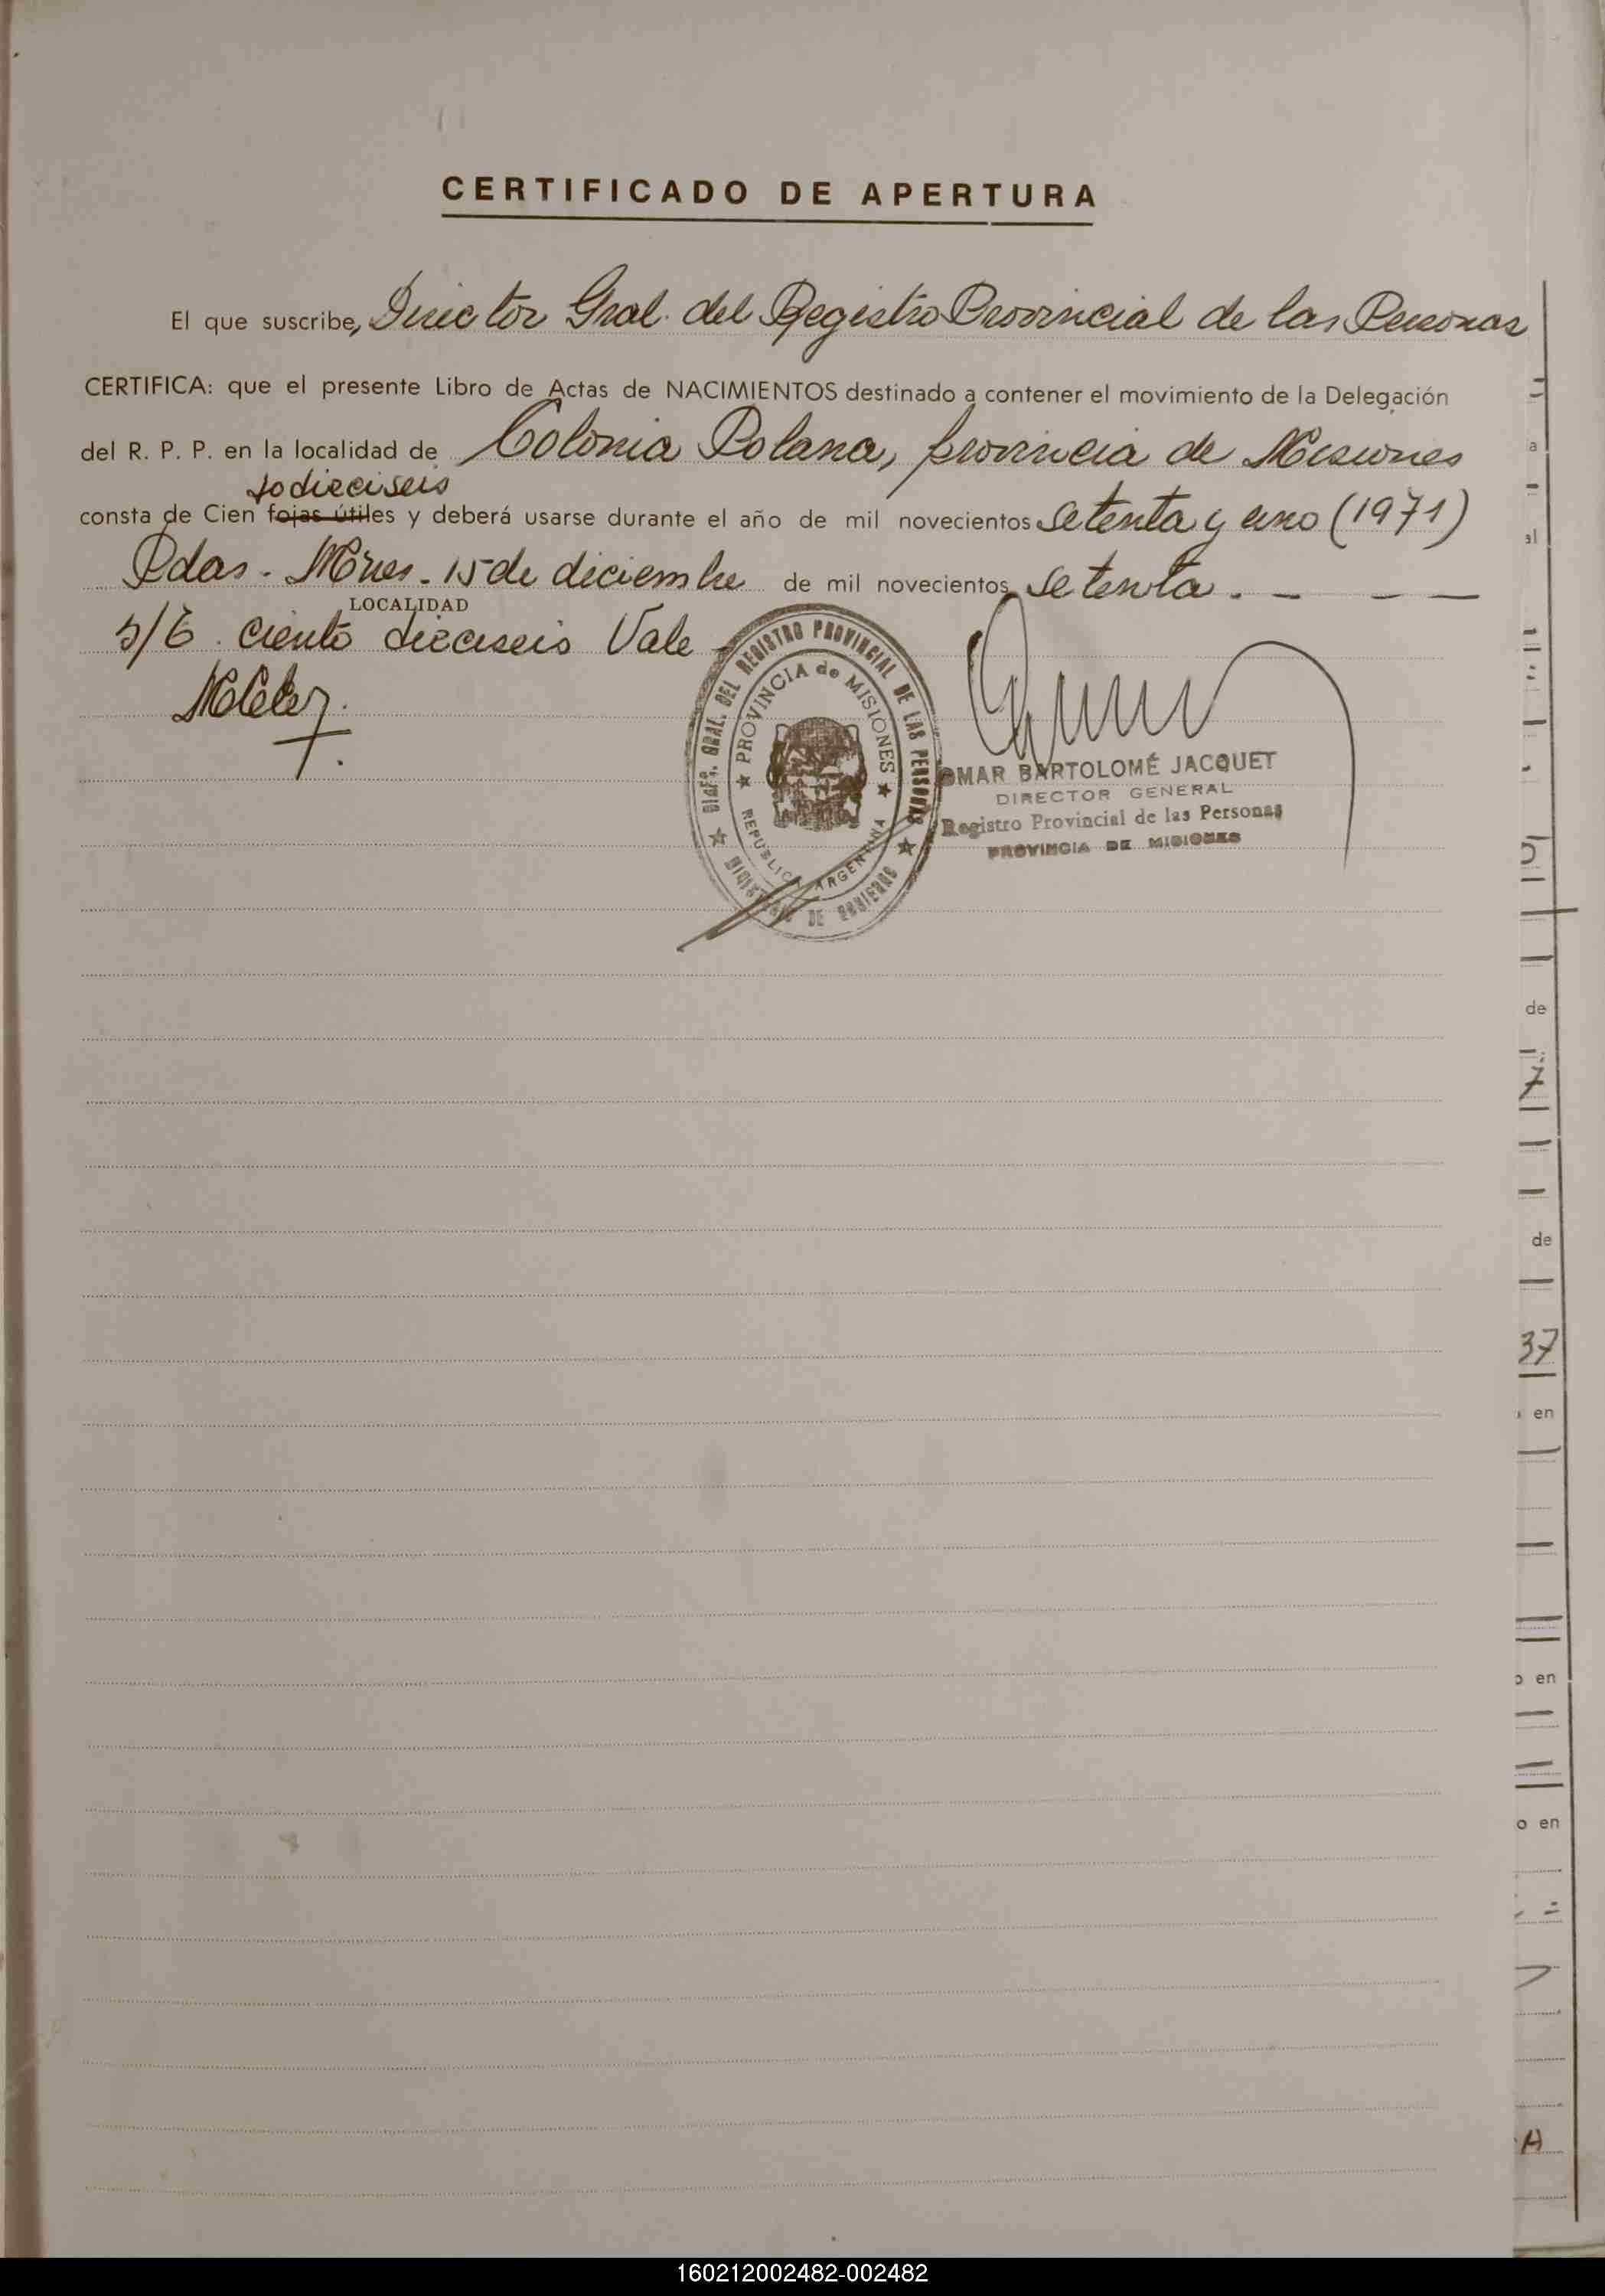 CERTIFICADO DE APERTURA
El que suscribe, Director Gral. del Registro Provincial de las Personas
CERTIFICA: que el presente Libro de Actas de NACIMIENTOS destinado a contener el movimiento de la Delegación
del R. P. P. en la localidad de Colonia Polana, provincia de Misiones
todieciseis
consta de Cien fojas útiles y deberá usarse durante el año de mil novecientos setenta y uno (1971)
Pdas. Mnes. 15 de diciembre de mil novecientos setenta. — — —
LOCALIDAD
S/E. ciento dieciseis Vale
DIREC. GRAL. DEL REGISTRO PROVINCIAL DE LAS PERSONAS
MINISTERIO DE GOBIERNO
PROVINCIA de MISIONES
REPUBLICA ARGENTINA
OMAR BARTOLOMÉ JACQUET
DIRECTOR GENERAL
Registro Provincial de las Personas
PROVINCIA DE MISIONES
a
al
de
7
de
37
en
o en
o en
A
160212002482-002482